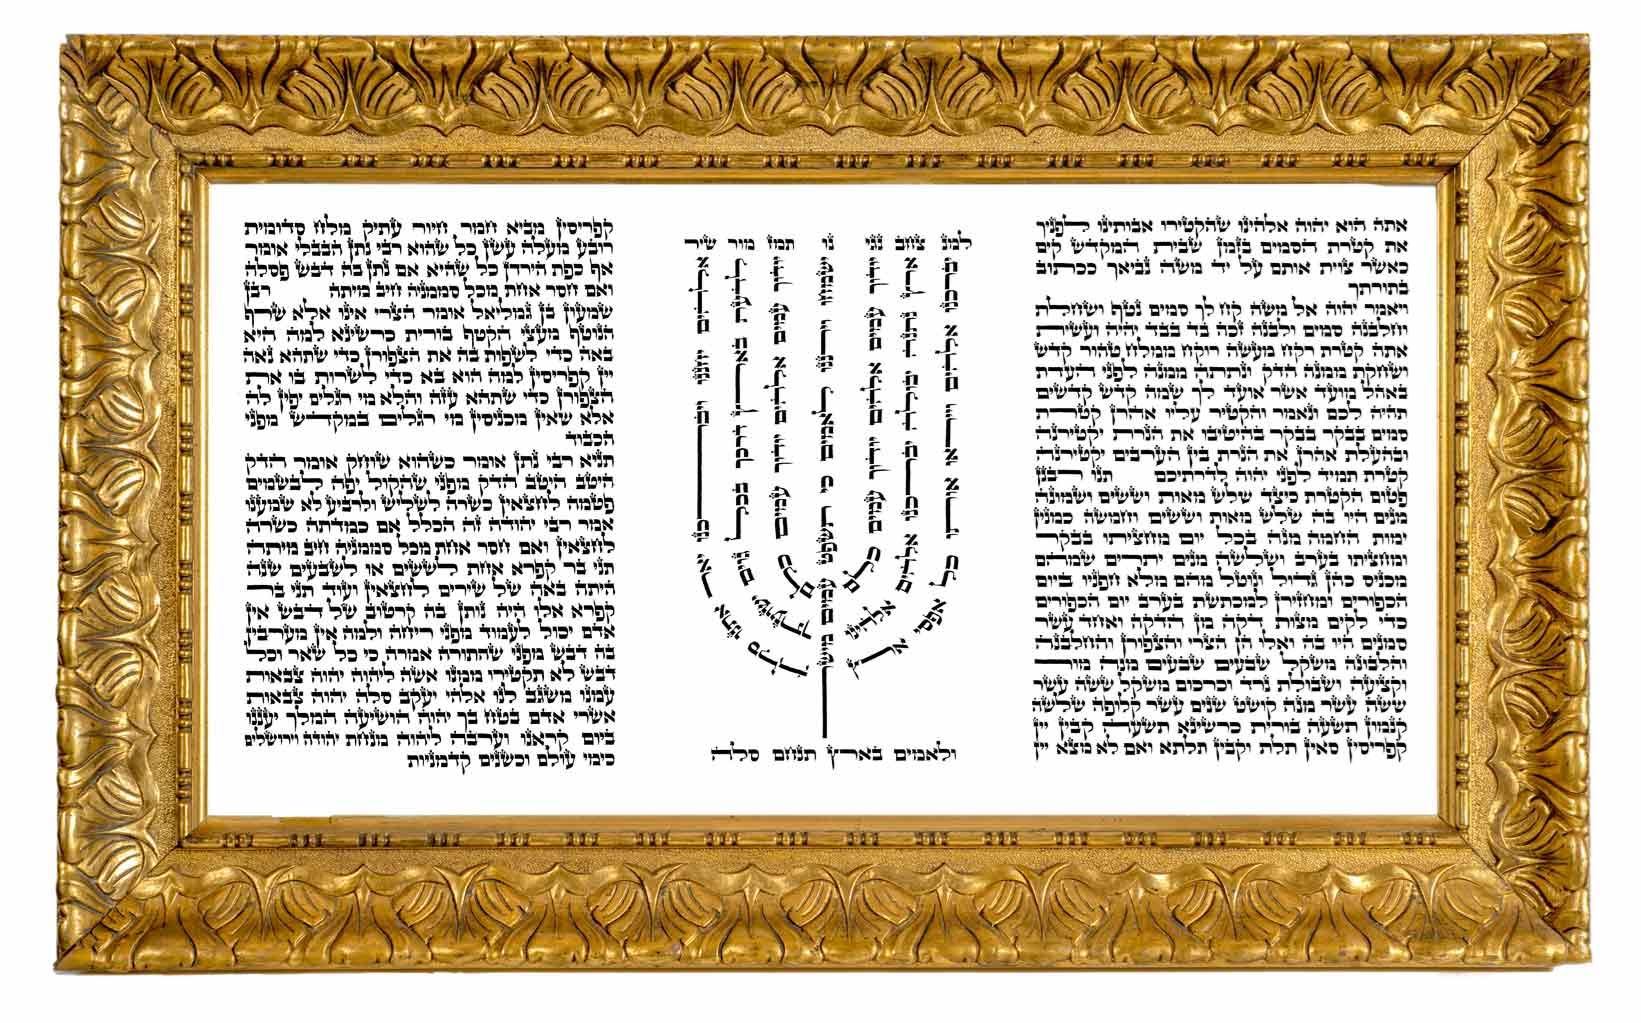 אתה הוא יהוה אלהינו שהקטירו אבותינו לפניך
את קטרת הסמים בזמן שבית המקדש קים
כאשר צוית אותם על יד משה נביאך ככתוב
בתורתך
ויאמר יהוה אל משה קח לך סמים נטף ושחלת
וחלבנה סמים ולבנה זכה בד בבד יהיה ועשית
אתה קטרת רקח מעשה רוקח ממולח טהור קדש
ושחקת ממנה הדק ונתתה ממנה לפני העדת
באהל מועד אשר אועד לך שמה קדש קדשים
תהיה לכם ונאמר והקטיר עליו אהרן קטרת
סמים בבקר בבקר בהיטיבו את הנרת יקטירנה
ובהעלת אהרן את הנרת בין הערבים יקטירנה
קטרת תמיד לפני יהוה לדרתיכם תנו רבנן
פטום הקטרת כיצד שלש מאות וששים ושמונה
מנים היו בה שלש מאות וששים וחמשה כמנין
ימות החמה מנה בכל יום מחציתו בבקר
ומחציתו בערב ושלשה מנים יתרים שמהם
מכניס כהן גדול ונוטל מהם מלא חפניו ביום
הכפורים ומחזירן למכתשת בערב יום הכפורים
כדי לקים מצות דקה מן הדקה ואחד עשר
סמנים היו בה ואלו הן הצרי והצפורן והחלבנה
והלבונה משקל שבעים שבעים מנה מור
וקציעה ושבולת נרד וכרכום משקל ששה עשר
ששה עשר מנה קושט שנים עשר קלופה שלשה
קנמון תשעה בורית כרשינא תשעה קבין יין
קפריסין סאין תלת וקבין תלתא ואם לא מצא יין
למנ צחב נגי נו תמז מור שיר
אלהים יחננו ויברכנו יאר אתנו סלה
לדעת בארץ דרכך בכל גוים ישועתך
יודוך עמים אלהים יודוך עמים כלם
ישמחו וירננו לאמים כי תשפט עמים מישר
יודוך עמים אלהים יודוך עמים כלם
ארץ נתנה יבולה יברכנו אלהים אלהינו
יברכנו אלהים וייראו אותו כל אפסי ארץ
ולאמים בארץ תנחם סלה
קפריסין מביא חמר חיור עתיק מלח סדומית
רובע מעלה עשן כל שהוא רבי נתן הבבלי אומר
אף כפת הירדן כל שהיא אם נתן בה דבש פסלה
ואם חסר אחת מכל סממניה חיב מיתה רבן
שמעון בן גמליאל אומר הצרי אינו אלא שרף
הנוטף מעצי הקטף בורית כרשינא למה היא
באה כדי לשפות בה את הצפורן כדי שתהא נאה
יין קפריסין למה הוא בא כדי לשרות בו את
הצפורן כדי שתהא עזה והלא מי רגלים יפין לה
אלא שאין מכניסין מי רגלים במקדש מפני
הכבוד
תניא רבי נתן אומר כשהוא שוחק אומר הדק
היטב היטב הדק מפני שהקול יפה לבשמים
פטמה לחצאין כשרה לשליש ולרביע לא שמענו
אמר רבי יהודה זה הכלל אם כמדתה כשרה
לחצאין ואם חסר אחת מכל סממניה חיב מיתה
תני בר קפרא אחת לששים או לשבעים שנה
היתה באה של שירים לחצאין ועוד תני בר
קפרא אלו היה נותן בה קרטוב של דבש אין
אדם יכול לעמוד מפני ריחה ולמה אין מערבין
בה דבש מפני שהתורה אמרה כי כל שאר וכל
דבש לא תקטירו ממנו אשה ליהוה יהוה צבאות
עמנו משגב לנו אלהי יעקב סלה יהוה צבאות
אשרי אדם בטח בך יהוה הושיעה המלך יעננו
ביום קראנו וערבה ליהוה מנחת יהודה וירושלים
כימי עולם וכשנים קדמניות